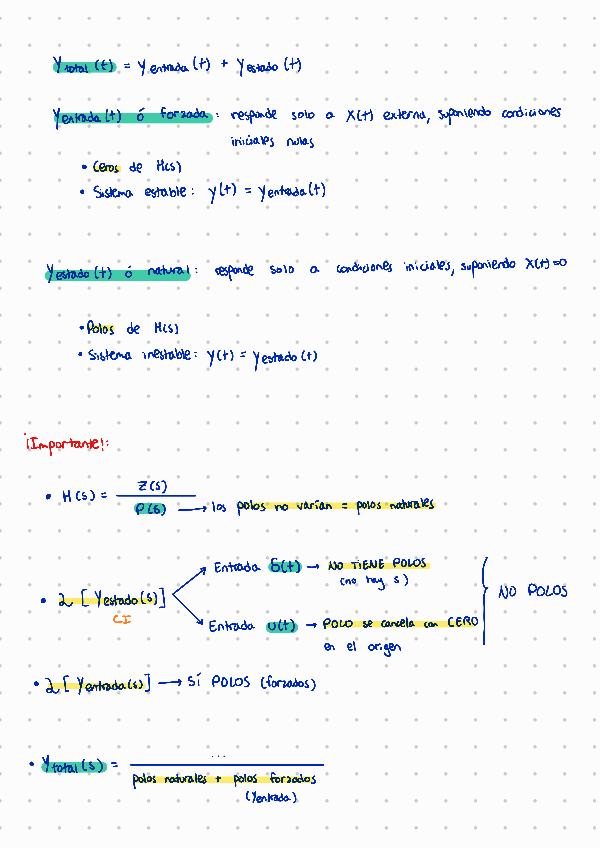 Ytotal (t) = Yentrada (t) + Yestado (t)
Yentrada (t) ó forzada: responde solo a X(t) externa, suponiendo condiciones
iniciales nulas
• Ceros de H(s)
• Sistema estable: y(t) = Yentrada(t)
Yestado (t) ó natural: responde solo a condiciones iniciales, suponiendo X(t)=0
• Polos de H(s)
• Sistema inestable: y(t) = Yestado (t)
¡Importante!:
• H(s) = Z(s) / P(s) → los polos no varían = polos naturales
• L [Yestado(s)]
CI
Entrada δ(t) → NO TIENE POLOS
(no hay s)
Entrada u(t) → POLO se cancela con CERO
en el origen
NO POLOS
• L [Yentrada(s)] → SÍ POLOS (forzados)
• Ytotal (s) = ... / polos naturales + polos forzados
(Yentrada)